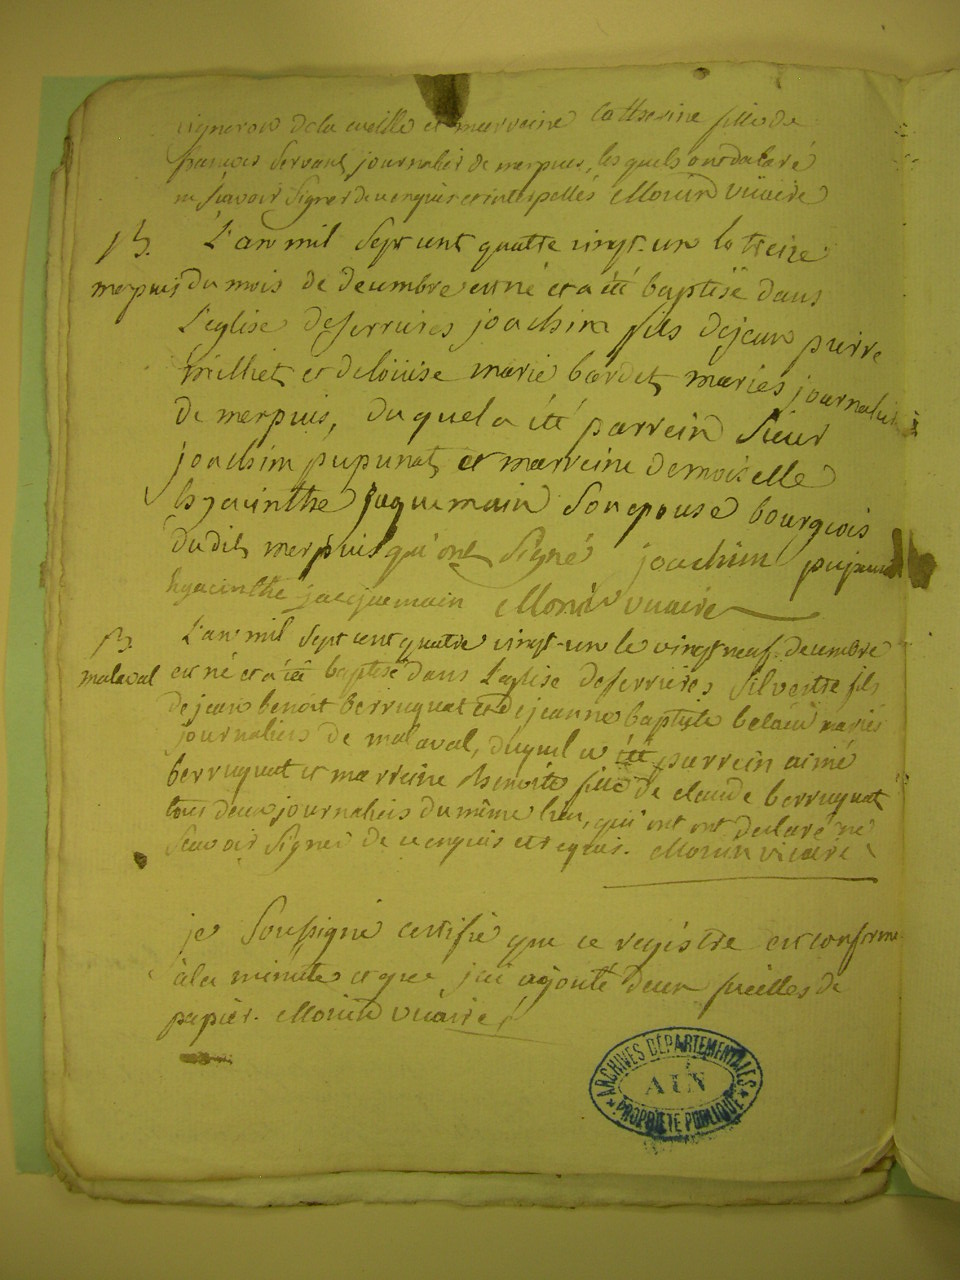 vigneron de la cueille et marreine Catherine fille de
francois Servant journalier de merpuis, les quels ont declaré
ne scavoir signer de ce enquis et interpellés Morin vicaire
B. L'an mil sept cent quattre vingt-un le treize
merpuis du mois de decembre est né et a été baptisé dans
L'eglise de serrieres joachim fils de jean pierre
milliet et de loüise marie bardet mariés journaliers
de merpuis, du quel a été parrein Sieur
joachim pupunat et marreine demoiselle
hyacinthe jaquemain Son epouse bourgeois
dudit merpuis qui ont signé joachim
hyacinthe jacquemain Morin vicaire
B. L'an mil sept cent quatre vingt-un le vingt neuf decembre
malaval est né et a été baptisé dans L'eglise de serrieres Silvestre fils
de jean benoit berruquat et de jeanne baptiste mariés
journaliers de malaval, duquel a été parrein aimé
berruquat et marreine benoite fille de claude berruquat
tous deux journaliers du même lieu, qui ont ont declaré ne
scavoir signer de ce enquis et requis. Morin vicaire
je soussigné certifie que ce registre est conforme
à la minute et que j'ai ajouté deux fueilles de
papier. Morin vicaire
ARCHIVES DÉPARTEMENTALES
AIN
PROPRIÉTÉ PUBLIQUE